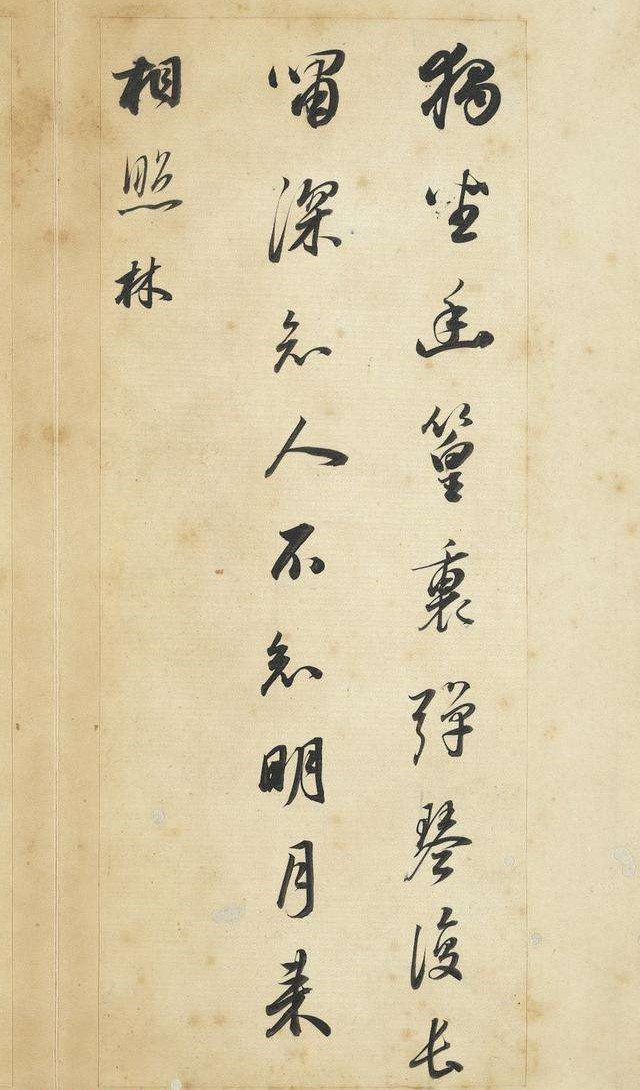 獨坐幽篁裏彈琴復長
嘯深知人不知明月来
相照林